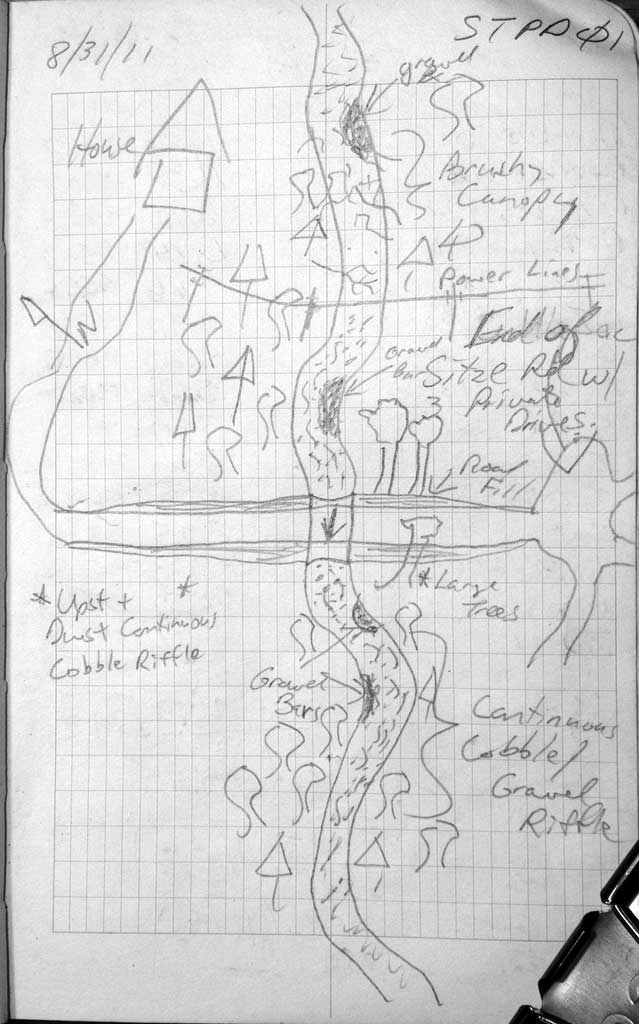 8/31/11
STPDØ1
gravel
Bar
House
Brushy
Canopy
Power Lines
End of
Sitze Rd w/
Private
Drives.
Gravel
Bar
Road
Fill
* Large
Trees
* Upst + *
Dwst Continuous
Cobble Riffle
Gravel
Bars
Continuous
Cobble/
Gravel
Riffle